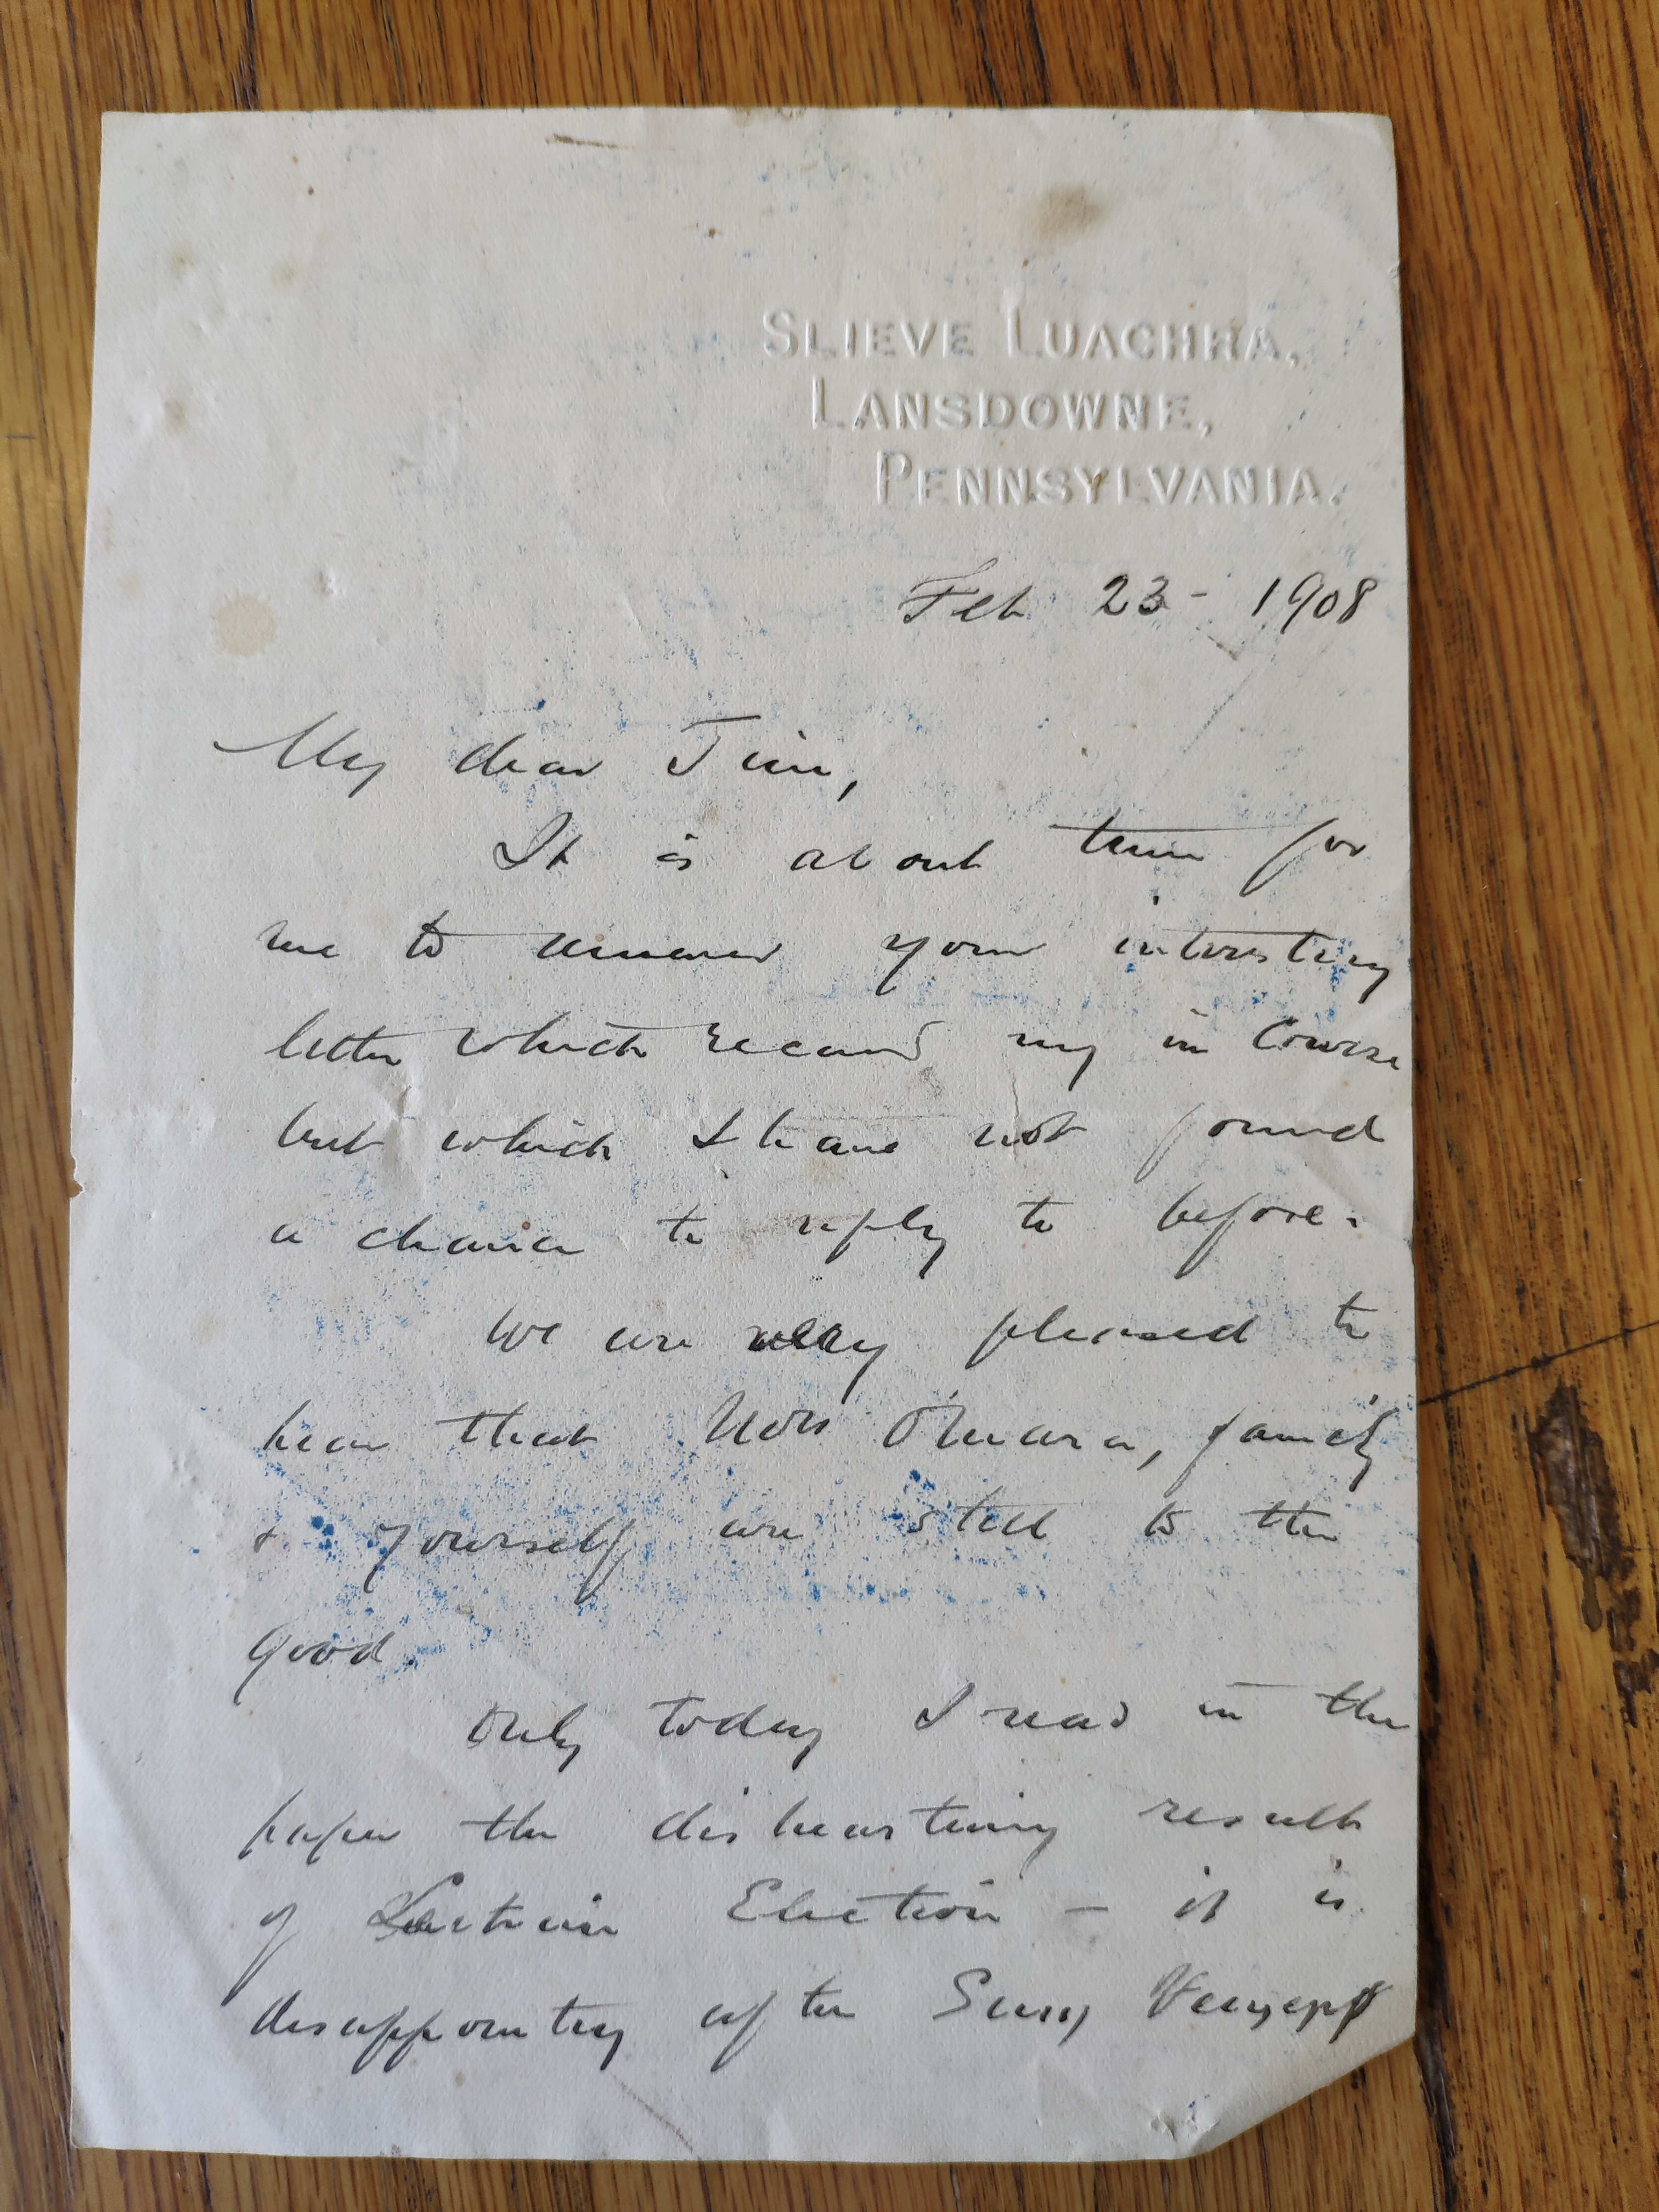 SLIEVE LUACHRA,
LANSDOWNE,
PENNSYLVANIA.
Feb 23 - 1908
My dear Jim,
It is about time for
me to answer your interesting
letter which received my in course
but which I have not found
a chance to reply to before.
We are very pleased to
hear that Mrs O'Mara, family
& yourself are still to the
good.
Only today I read in the
paper the disheartening result
of Leitrim Election - it is
disappointing after Sinn